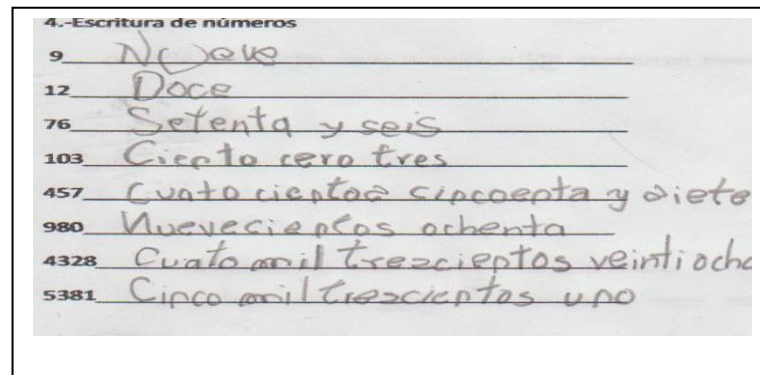 4.-Escritura de números
9 Nueve
12 Doce
76 Setenta y seis
103 Ciento cero tres
457 Cuato cientos cincoenta y siete
980 Nuevecientos ochenta
4328 Cuato mil trezcientos veintiocho
5381 Cinco mil trezcientos uno